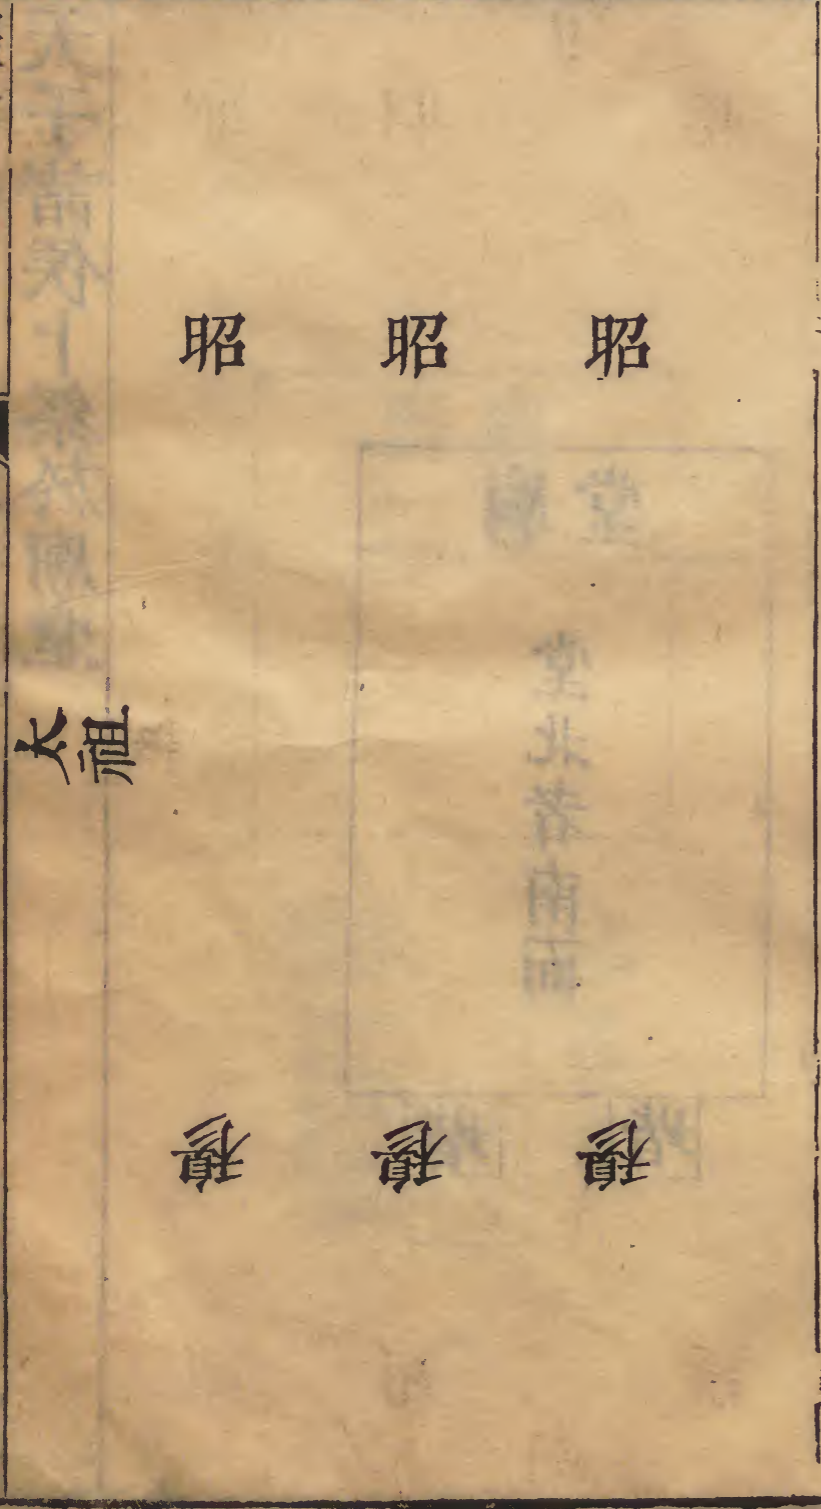 昭 昭 昭
太祖
穆 穆 穆